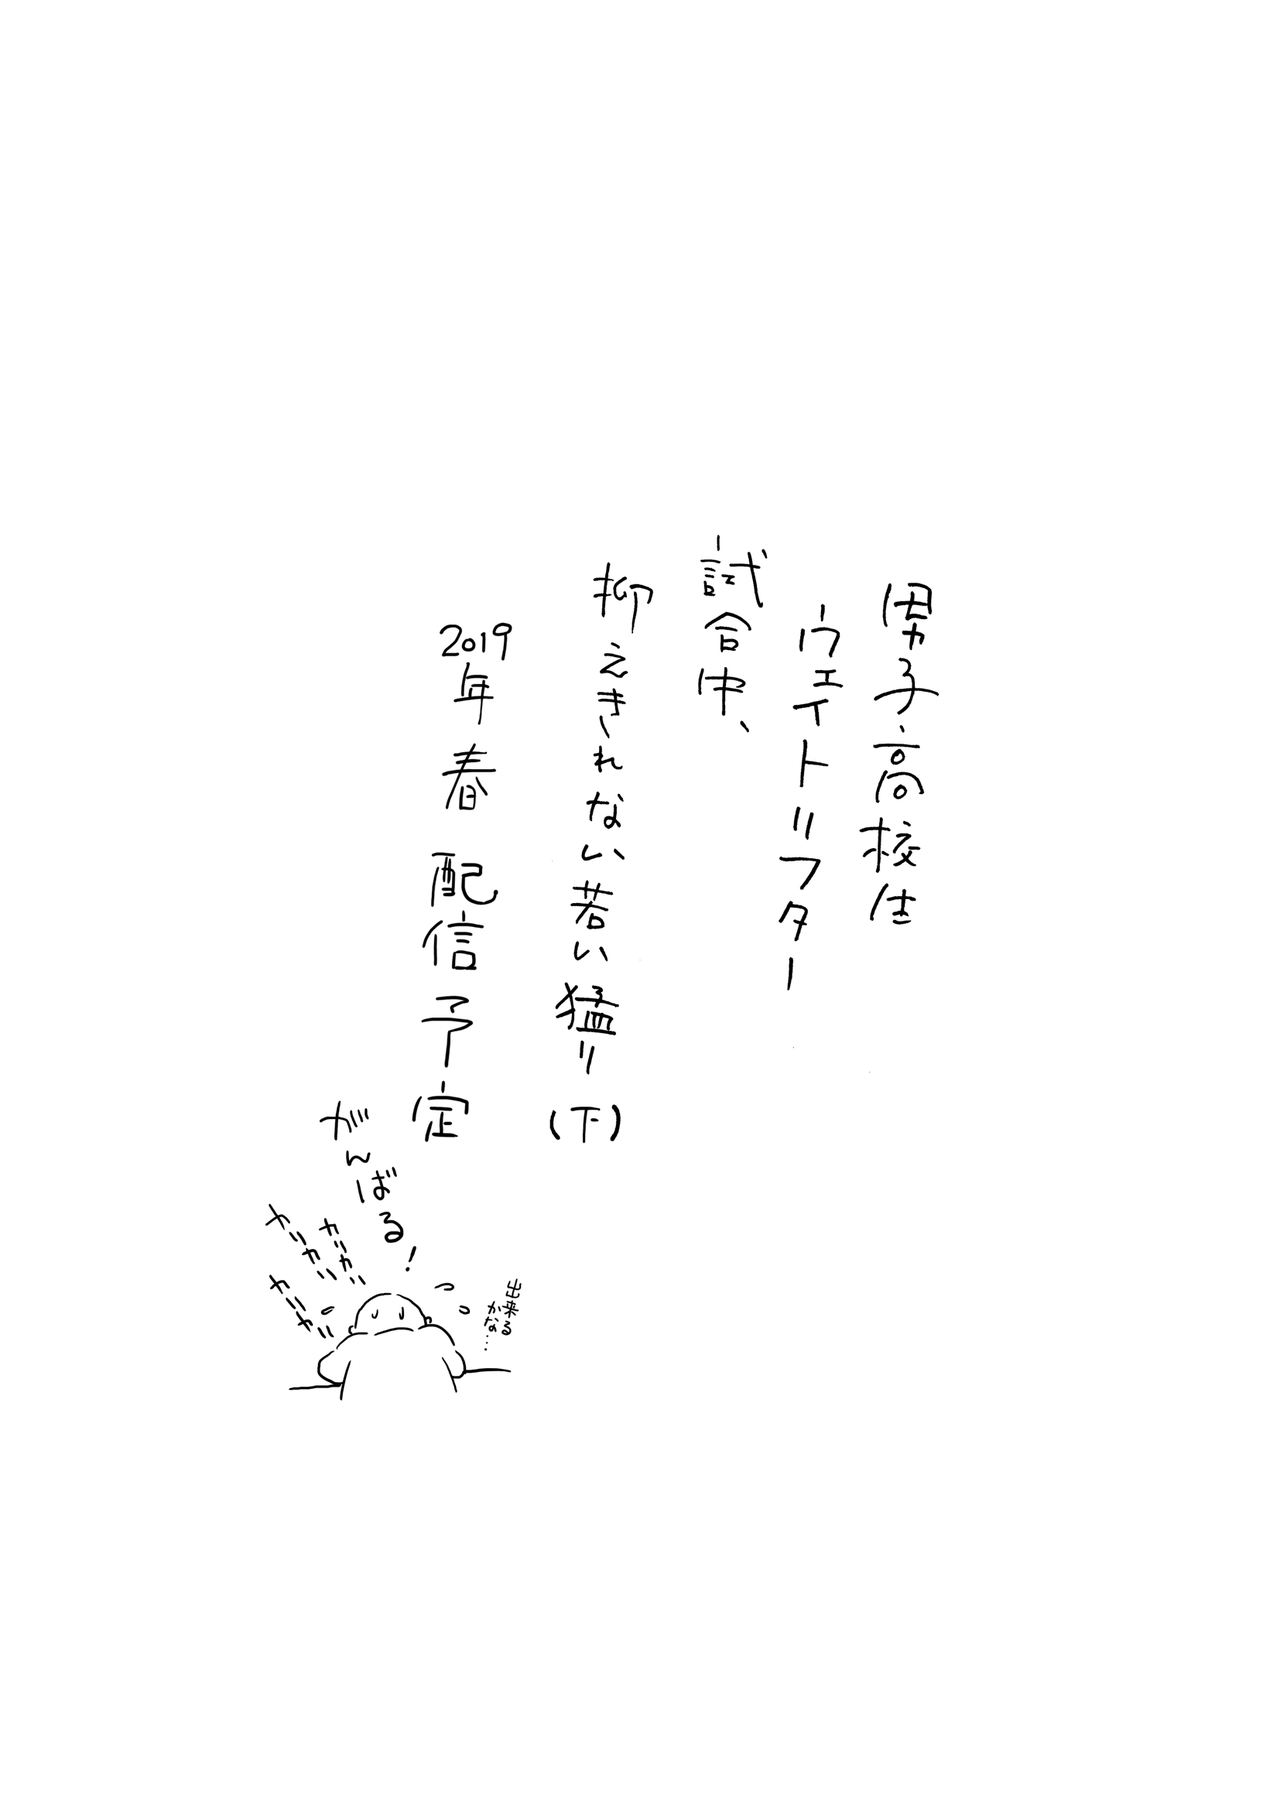 男子高校生
ウェイトリフター
試合中、
抑えきれない若い猛り(下)
2019年 春 配信予定
がんばる!
カリカリ
カリカリ
カリカリ
出来る
かな…